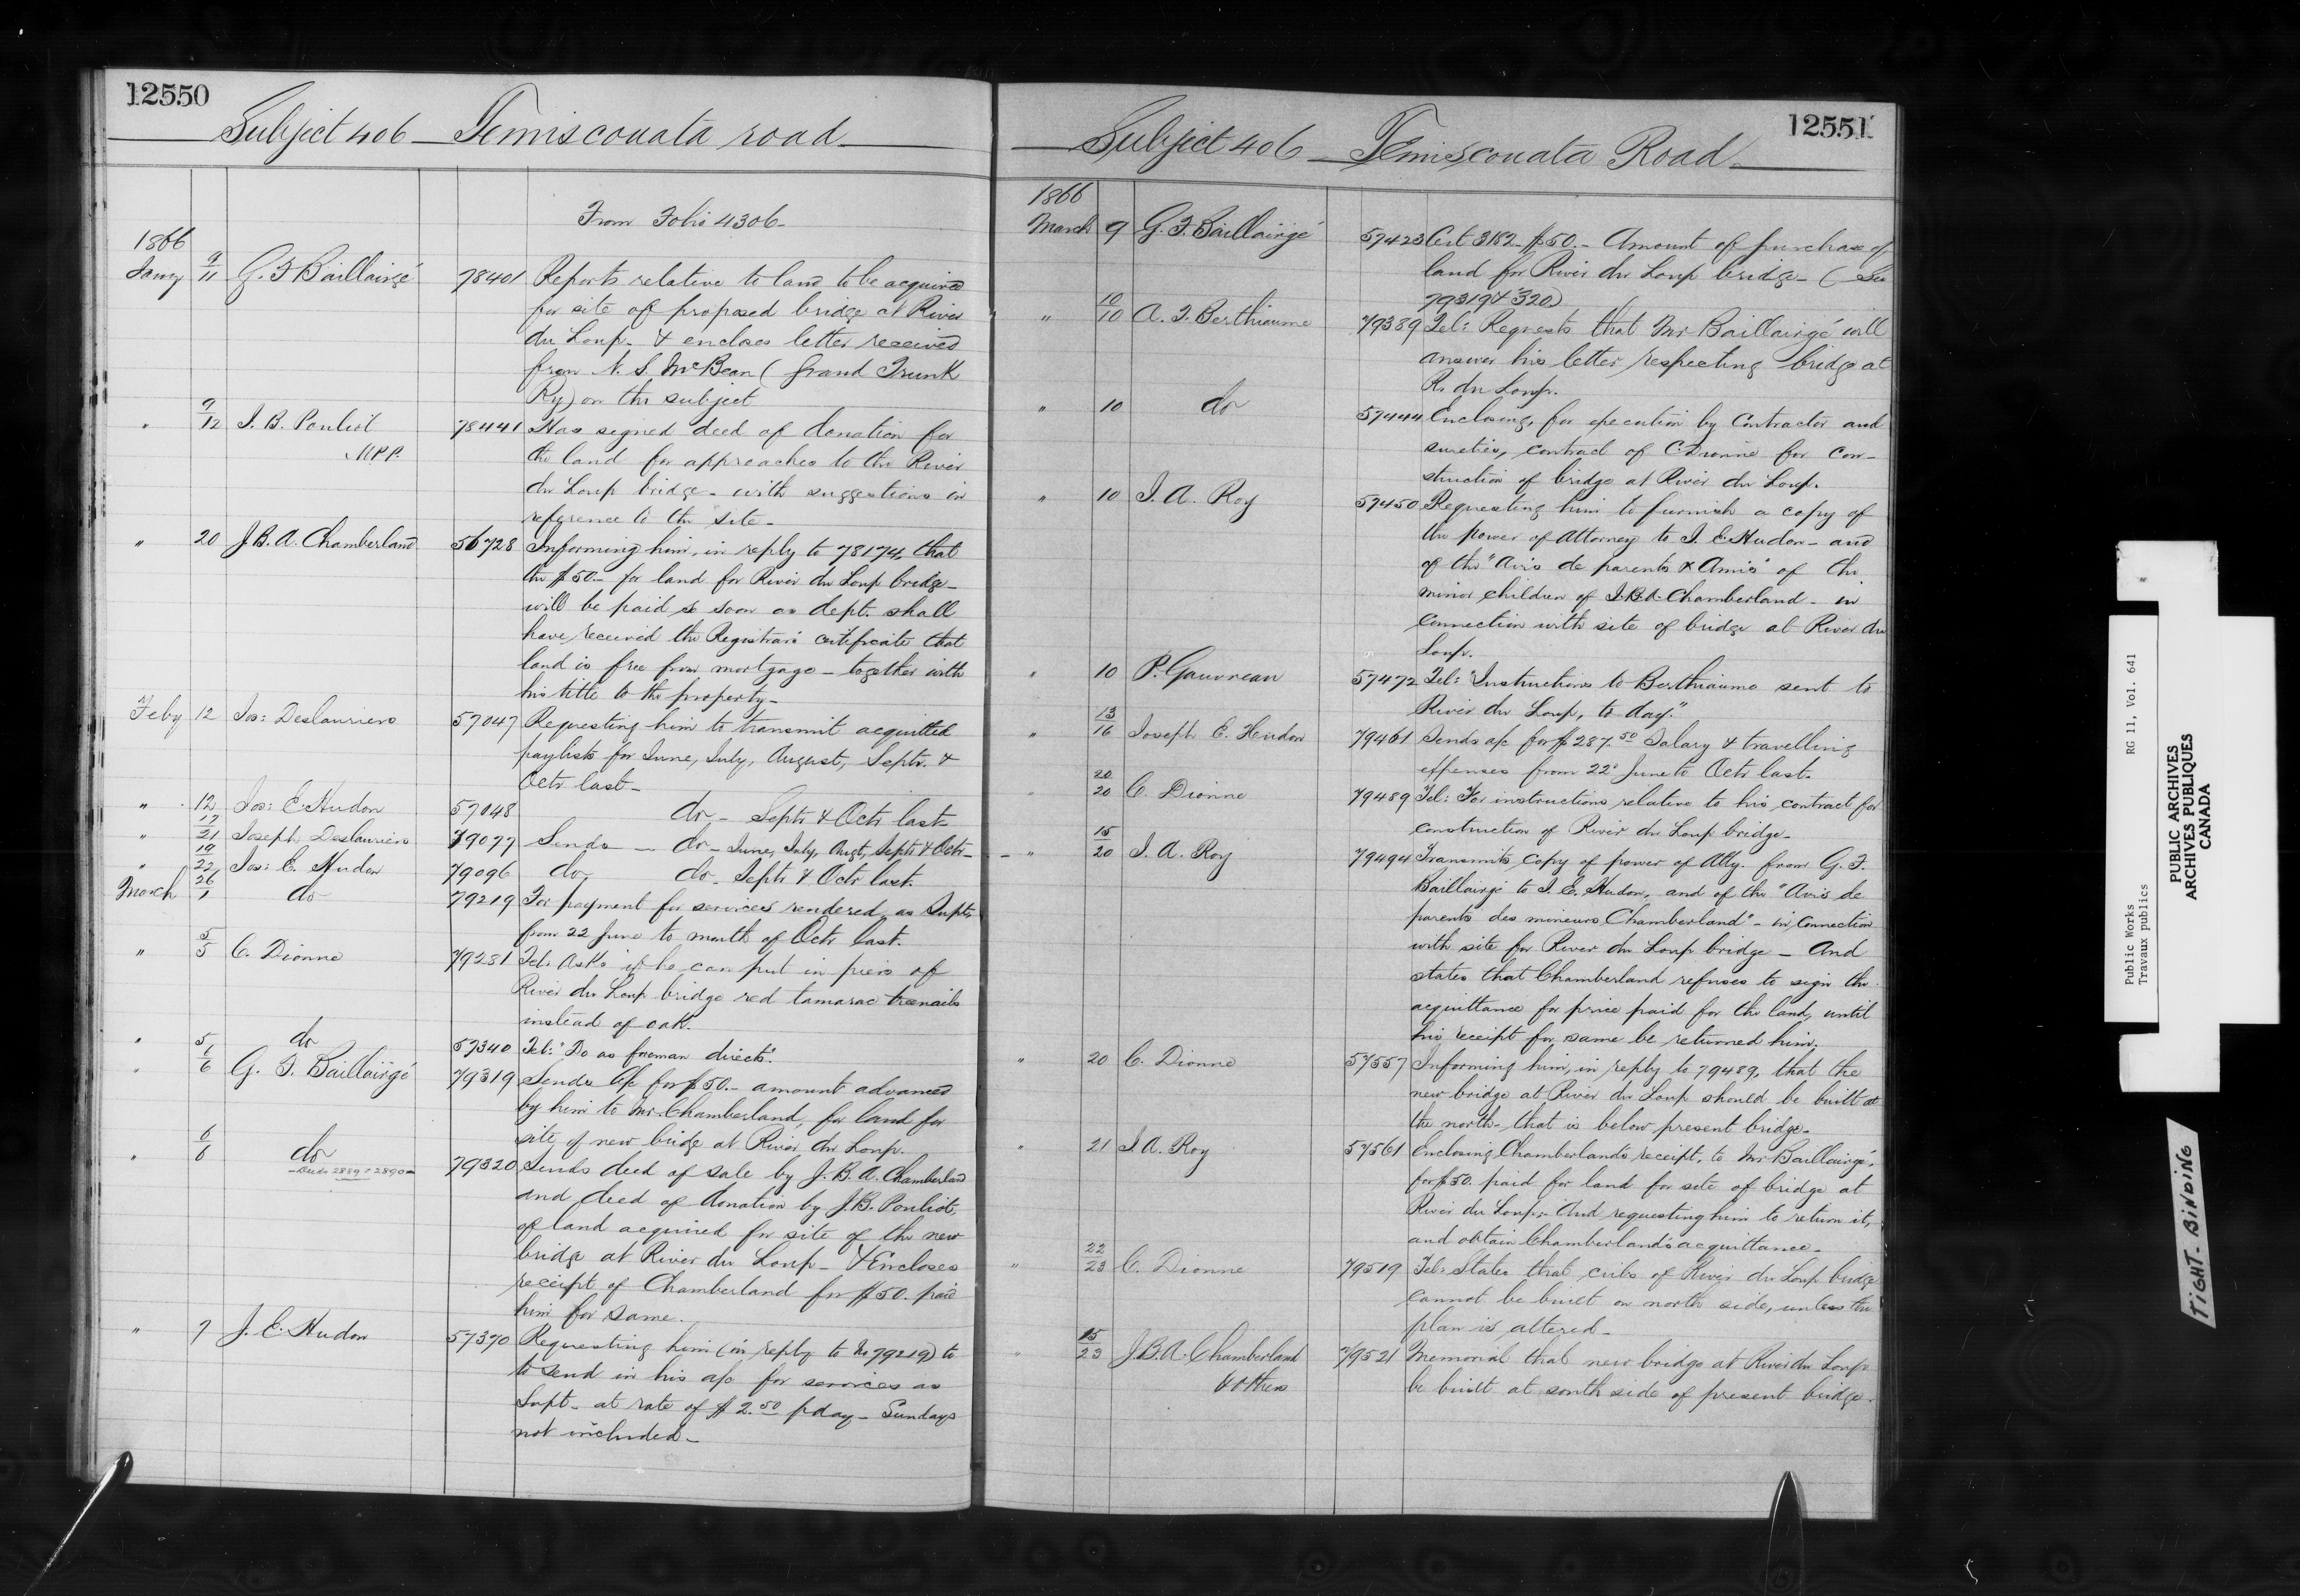 12550
Subject 406 – Temiscouata road
From Folio 4306 –
1866
Jany 9/11 G. F. Baillairgé 78401 Reports relative to land to be acquired
for site of proposed bridge at River
du Loup – & encloses letter received
from N. S. McBean (Grand Trunk
Ry) on the subject
" 9/12 J. B. Pouliot 78441 Has signed deed of donation for
M.P.P. the land for approaches to the River
du Loup bridge – with suggestions in
reference to the site –
" 20 J. B. A. Chamberland 56728 Informing him, in reply to 78174, that
the $50 – for land for River du Loup bridge –
will be paid so soon as dept. shall
have received the Registrar's certificate that
land is free from mortgage – together with
his title to the property –
Feby 12 Jos: Deslauriers 57047 Requesting him to transmit acquitted
paylists for June, July, August, Septr. &
Octr last –
" 12 Jos: E. Hudon 57048 do – Septr & Octr last –
" 17/21 Joseph Deslauriers 79077 Sends – do – June, July, Augt, Septr & Octr –
" 19/22 Jos: E. Hudon 79096 do do – Septr & Octr last.
March 26/1 do 79219 For payment for services rendered as Supt.
from 22 June to month of Octr last.
" 5/5 C. Dionne 79281 Tel: Asks if he can put in piers of
River du Loup bridge red tamarac treenails
instead of oak.
" 5 do 57340 Tel: "Do as foreman directs."
" 6/6 G. F. Baillairgé 79319 Sends a/c for $50. – amount advanced
by him to Mr. Chamberland, for land for
site of new bridge at River du Loup.
" 6/6 do 79320 Sends deed of sale by J. B. A. Chamberland
– Deeds 2889 & 2890 –
and deed of donation by J. B. Pouliot,
of land acquired for site of the new
bridge at River du Loup – & Encloses
receipt of Chamberland for $50. paid
him for same.
" 7 J. E. Hudon 57370 Requesting him (in reply to No 79219) to
to send in his a/c for services as
Supt – at rate of $2.50 p day – Sundays
not included –
12551
Subject 406 – Temiscouata Road –
1866
March 9 G. F. Baillairgé 57423 Cert 3182 – $50. – Amount of purchase of
land for River du Loup bridge – (See
79319 & 320)
" 10/10 A. F. Berthiaume 79389 Tel: Requests that Mr Baillairgé will
answer his letter respecting bridge at
R. du Loup.
" 10 do 57444 Enclosing, for execution by Contractor and
sureties, contract of C. Dionne for con-
struction of bridge at River du Loup.
" 10 J. A. Roy 57450 Requesting him to furnish a copy of
the power of Attorney to J. E. Hudon – and
of the "Avis de parents & Amis" of the
minor children of J. B. A. Chamberland – in
connection with site of bridge at River du
Loup.
" 10 P. Gauvreau 57472 Tel: "Instructions to Berthiaume sent to
River du Loup, to day."
" 13/16 Joseph E. Hudon 79461 Sends a/c for $287.50 Salary & travelling
expenses from 22d June to Octr last.
" 20/20 C. Dionne 79489 Tel: For instructions relative to his contract for
construction of River du Loup bridge –
" 15/20 J. A. Roy 79494 Transmits copy of power of Atty. from G. F.
Baillairgé to J. E. Hudon, and of the "Avis de
parents des mineurs Chamberland" – in connection
with site for River du Loup bridge – And
states that Chamberland refuses to sign the
acquittance for price paid for the land, until
his receipt for same be returned him.
" 20 C. Dionne 57557 Informing him, in reply to 79489, that the
new bridge at River du Loup should be built at
the north – that is below present bridge –
" 21 J. A. Roy 57561 Enclosing Chamberland's receipt, to Mr Baillairgé,
for $50. paid for land for site of bridge at
River du Loup – And requesting him to return it,
and obtain Chamberland's acquittance –
" 22/23 C. Dionne 79519 Tel: States that cribs of River du Loup bridge
cannot be built on north side, unless the
plan is altered –
" 15/23 J. B. A. Chamberland 79521 Memorial that new bridge at River du Loup
& others be built at south side of present bridge.
Public Works RG 11, Vol. 641
Travaux publics
PUBLIC ARCHIVES
ARCHIVES PUBLIQUES
CANADA
TIGHT BINDING